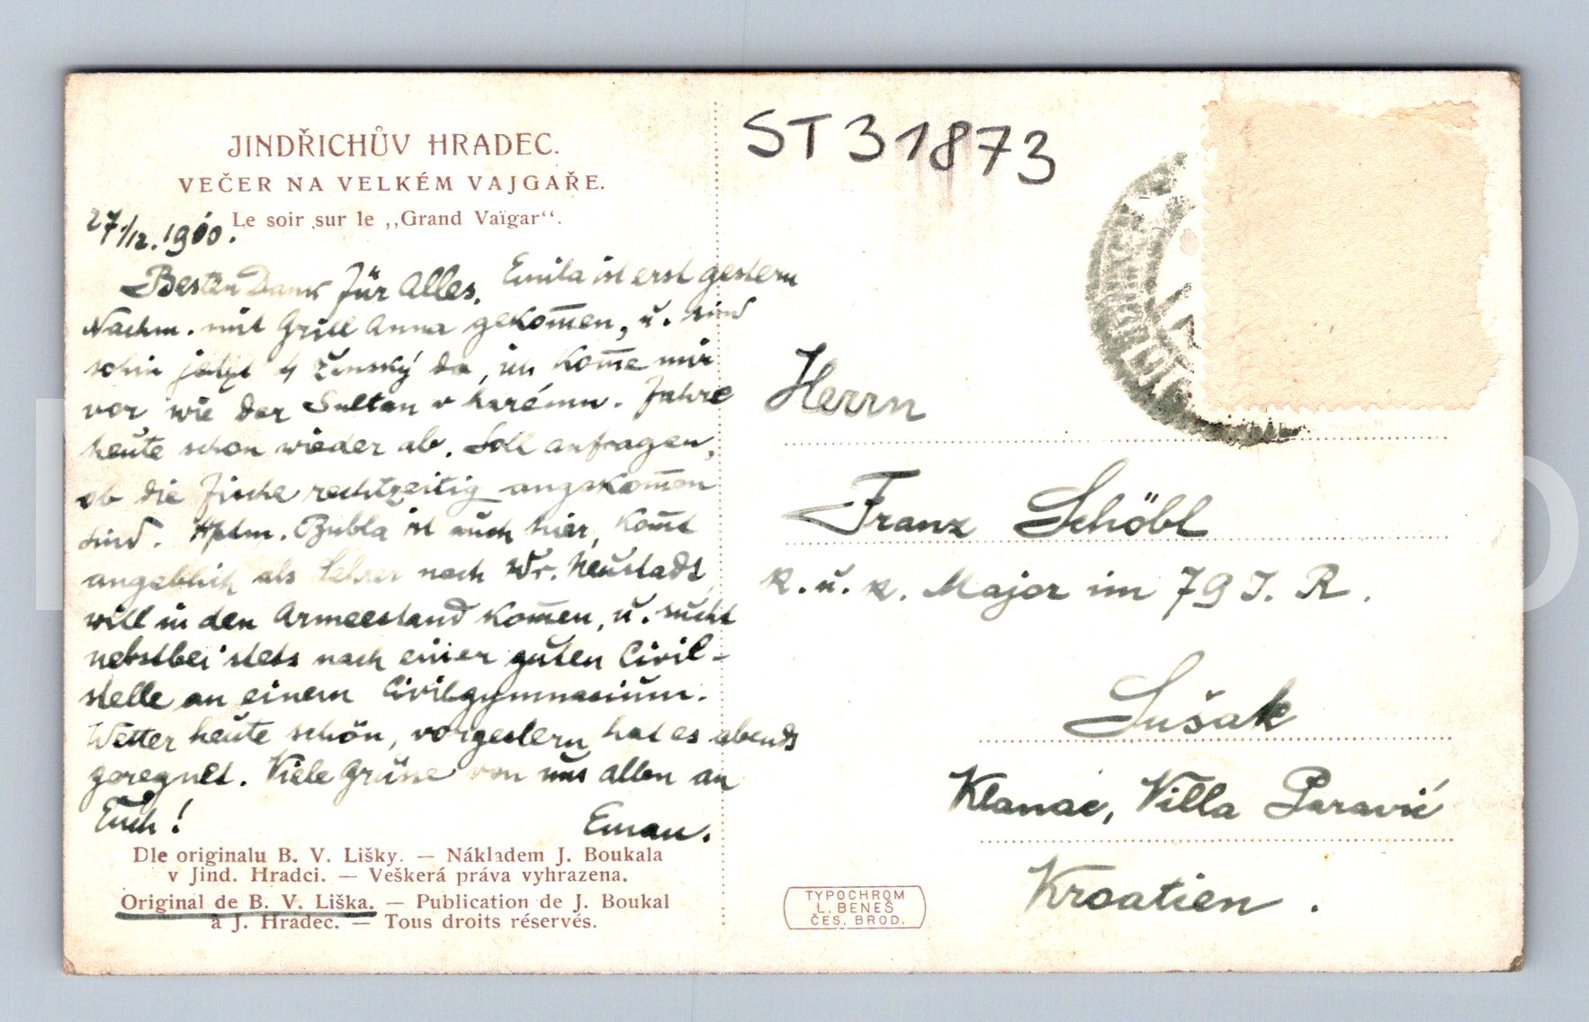 JINDŘICHŮV HRADEC.
VEČER NA VELKÉM VAJGAŘE.
Le soir sur le ,,Grand Vaïgar“.
27/12. 1910.
Besten Dank für Alles. Emila ist erst gestern
Nachm. mit Grill Anna gekom̄en, u. sind
schon jetzt 4 ženský da, ich kom̄e mir
vor wie der Sultan v harému. Fahre
heute schon wieder ab. Soll anfragen,
ob die Fische rechtzeitig angekom̄en
sind. Hptm. Bubla ist auch hier, kom̄t
angeblich als Lehrer nach Wr. Neustadt,
will in den Armeestand kom̄en, u. sucht
nebstbei stets nach einer guten Civil-
stelle an einem Civilgymnasium.
Wetter heute schön, vorgestern hat es abends
geregnet. Viele Grüsse von uns allen an
Euch! Eman.
Dle originalu B. V. Lišky. — Nákladem J. Boukala
v Jind. Hradci. — Veškerá práva vyhrazena.
Original de B. V. Liška. — Publication de J. Boukal
à J. Hradec. — Tous droits réservés.
ST31873
Herrn
Franz Schöbl
k. u. k. Major im 79 I. R.
Sušak
Klanac, Villa Paravić
Kroatien.
TYPOCHROM
L. BENEŠ
ČES. BROD.